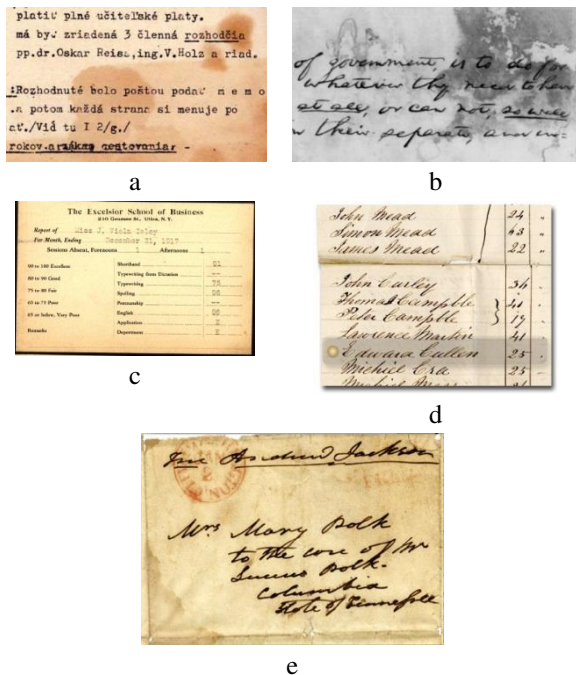 platiť plné učiteľské platy.
má byť zriadená 3 členná rozhodčia
pp.dr.Oskar Reisa,ing.V.Holz a riad.
:Rozhodnuté bolo poštou podať n e m o
.a potom každá strana si menuje po
ať./Viď tu I 2/g./
a
of government, is to do for
whatever they need to have
at all, or can not, so well
their separate, and in=
b
The Excelsior School of Business
Utica, N.Y.
Report of Miss J. Viola
For Month, Ending December 31, 1917
Sessions Absent, Forenoons 1 Afternoons 1
90 to 100 Excellent
80 to 90 Good
75 to 80 Fair
65 to 75 Poor
65 or below, Very Poor
Remarks
Shorthand 91
Typewriting from Dictation --
Typewriting 75
Spelling 98
Penmanship --
English
Application
Department
c
John Mead 24 "
Simon Mead 63 "
James Mead 22 "
John Curley 36
Thomas Campble 40
Peter Campble 19
Lawrence Martin 41
Edward Cullen 25
Michiel Cra 25
d
Andrew Jackson
Mrs Mary Polk
to the care of Mr
Lucius Polk.
Columbia
State of Tennessee
e